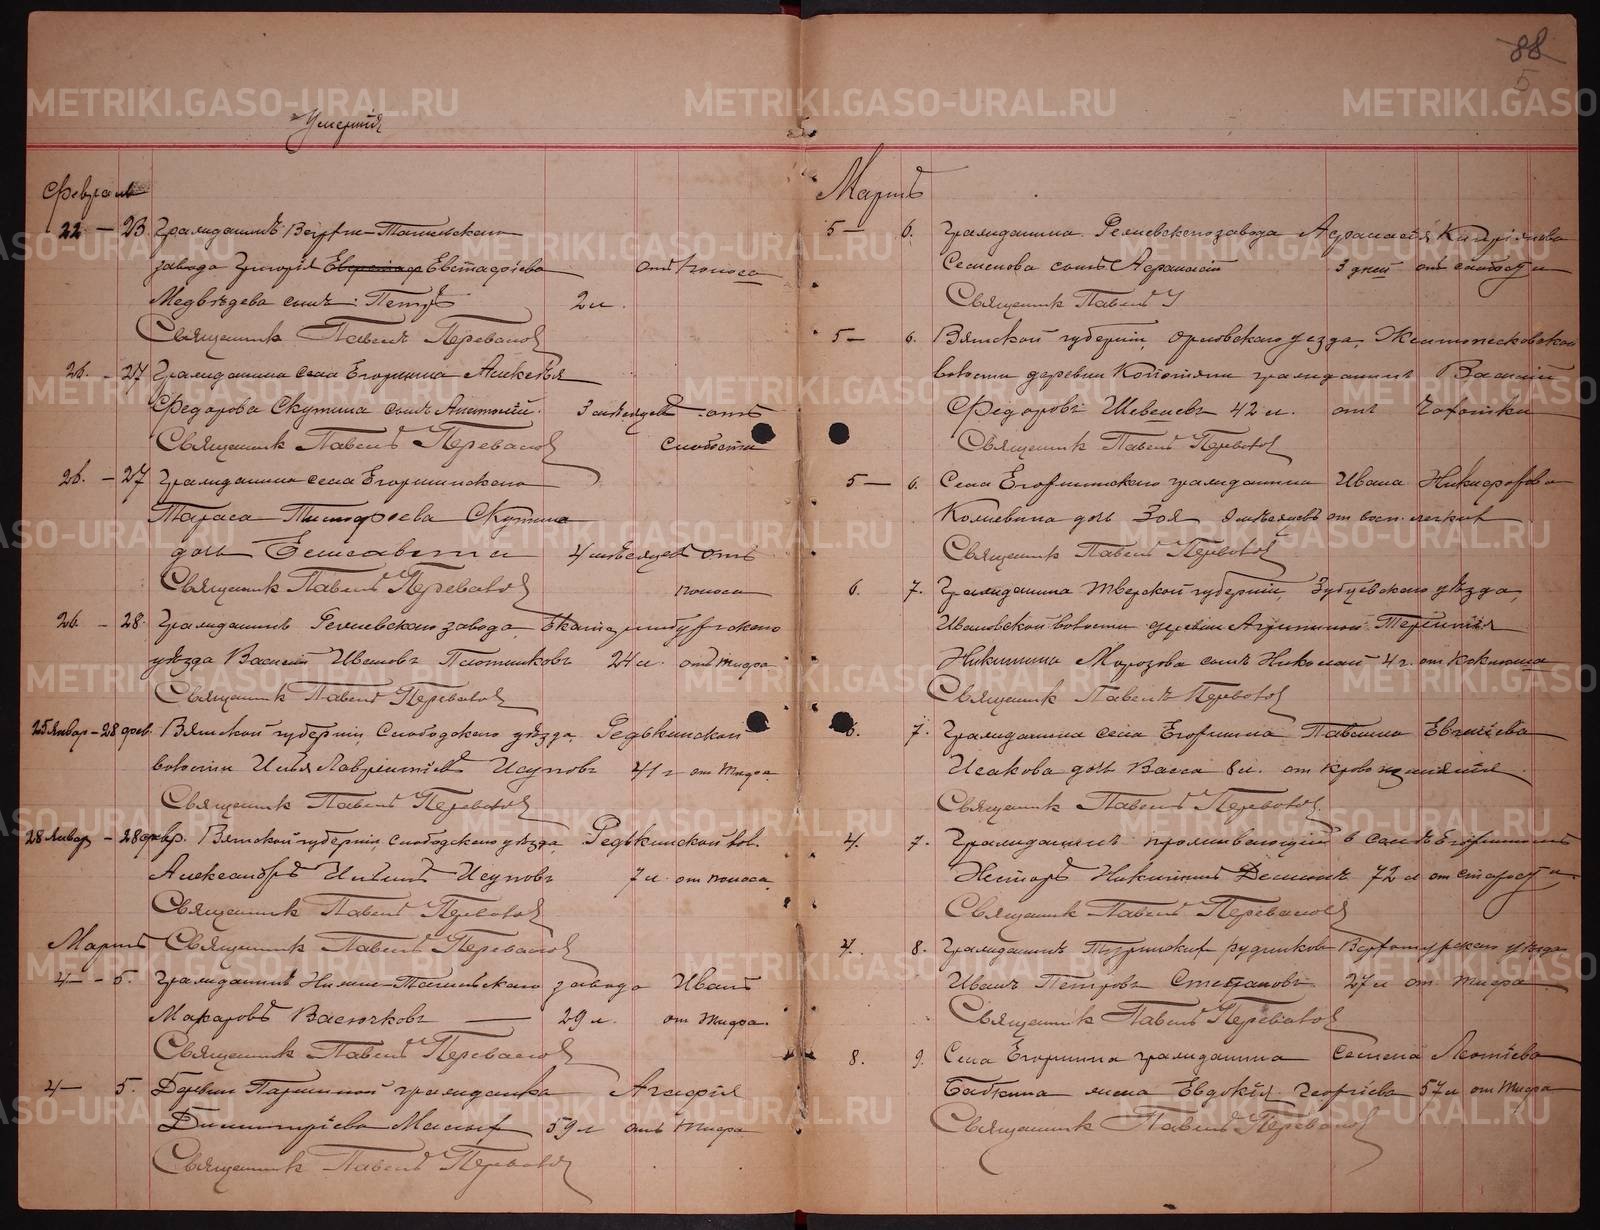 88
5
Умершiя
Февраль
22 – 23 Гражданинъ Верхне-Тагильскаго
завода Григорiя Евстафiева от поноса
Медвѣдева сынъ Петръ 2 л.
Священник Павелъ Перевалов
26. – 27 Гражданина села Егоршина Алексѣя
Федорова Скутина сынъ Анатолiй. 3 мѣсяцев отъ
Священник Павелъ Перевалов слабости
26. – 27 Гражданина села Егоршинскаго
Тараса Тимофеева Скутина
дочь Елисавета 4 мѣсяцев отъ
Священник Павелъ Перевалов поноса
26 – 28. Гражданинъ Режевскаго завода, Екатеринбургскаго
уѣзда Василiй Ивановъ Плотниковъ 24 л. отъ тифа
Священник Павелъ Перевалов
25 Январ – 28 фев. Вятской губернiи, Слободского уѣзда, Редькинской
волости Илья Лаврентiевъ Исуповъ 41 г от тифа
Священник Павелъ Перевалов
28 Январ – 28 февр. Вятской губернiи, слободского уѣзда Редькинской вол.
Александръ Ильинъ Исуповъ 7 л от поноса
Священник Павелъ Перевалов
Мартъ Священник Павелъ Перевалов
4 – 5. Гражданинъ Нижне-Тагильскаго завода Иванъ
Макаровъ Васючковъ — 29 л. от тифа.
Священник Павелъ Перевалов
4 – 5. Деревни Паршиной гражданка Агафiя
Димитрiева 59 л отъ тифа
Священник Павелъ Перевалов
Мартъ
5 – 6. Гражданина Режевского завода Афанасiя Кипрiянова
Семенова сынъ Афанасiй 3 дней от слабости
Священник Павелъ
5 – 6. Вятской губернiи, орловскаго уезда,
волости деревни гражданинъ Василiй
Федоровъ Шевелевъ 42 л. отъ чахотки
Священник Павелъ Перевалов
5 – 6. Села Егоршинскаго гражданина Ивана Никифорова
дочь Зоя 9 мѣсяцевъ от восп. легких
Священник Павелъ Перевалов
6. 7. Гражданина Тверской губернiи, Зубцевскаго уѣзда,
Ивановской волости деревни Терентiя
Никитина Морозова сынъ Николай 4 г. от коклюша
Священник Павелъ Перевалов
6. 7. Гражданина села Егоршина Павлина
Исакова дочь Васса 8 л. от кровоизлiянiя
Священник Павелъ Перевалов
4. 7. Гражданинъ проживающiй в селѣ Егоршинскомъ
Несторъ Никитинъ 72 л от старости
Священник Павелъ Перевалов
4. 8. Гражданинъ Туринских рудников Верхотурскаго уѣзда
Иванъ Петровъ Степановъ 27 л от тифа
Священник Павелъ Перевалов
8. 9. Села Егоршина гражданина Семена Леонтiева
Бабкина жена Евдокiя Георгiева 57 л от тифа
Священник Павелъ Перевалов
METRIKI.GASO-URAL.RU